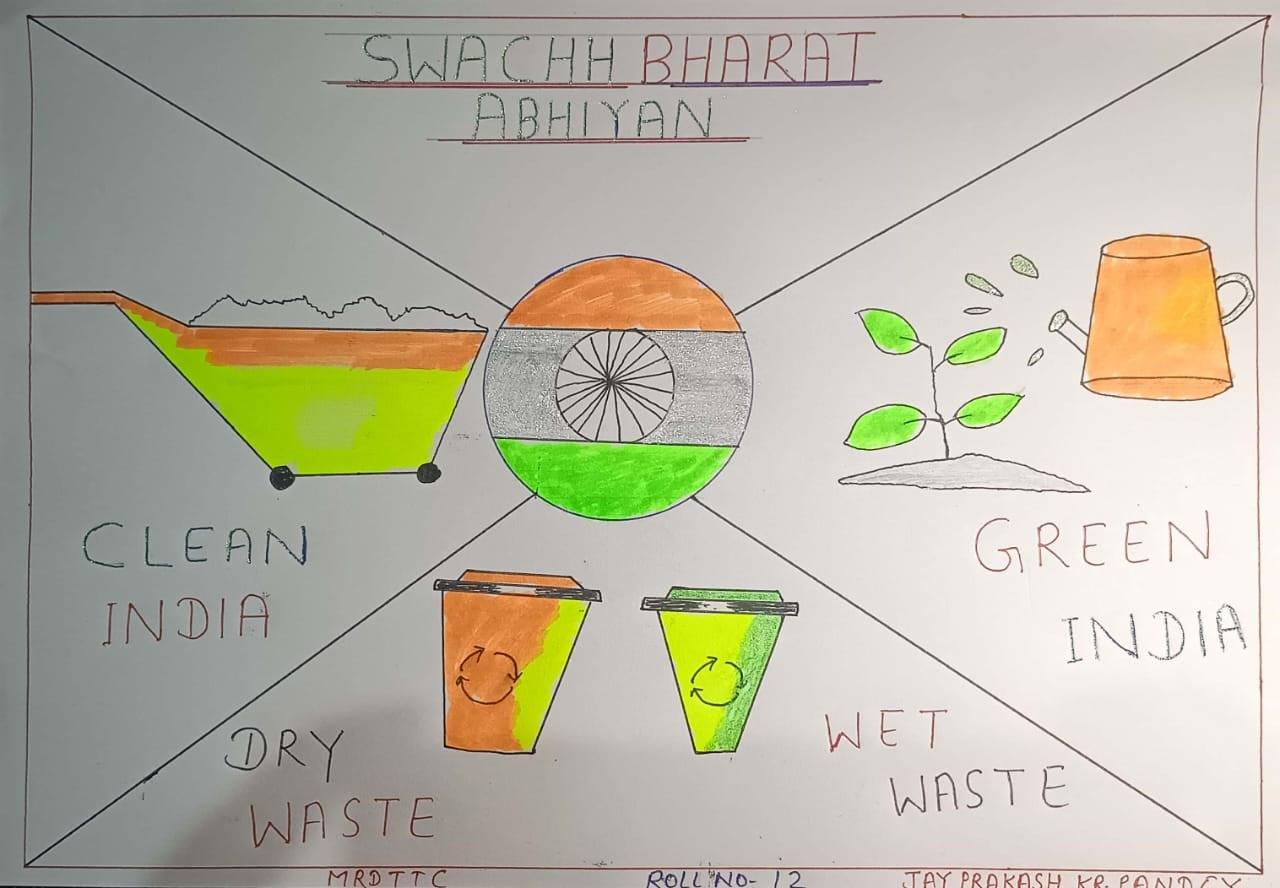 SWACHH BHARAT
ABHIYAN
CLEAN
INDIA
GREEN
INDIA
DRY
WASTE
WET
WASTE
MRDTTC ROLL NO- 12 JAY PRAKASH KR. PANDEY